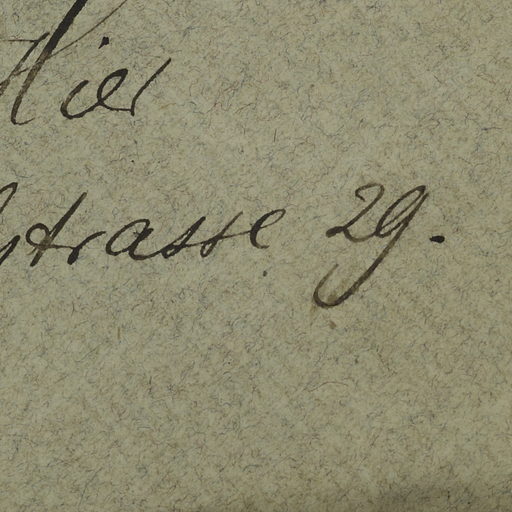 Hier
strasse 29.